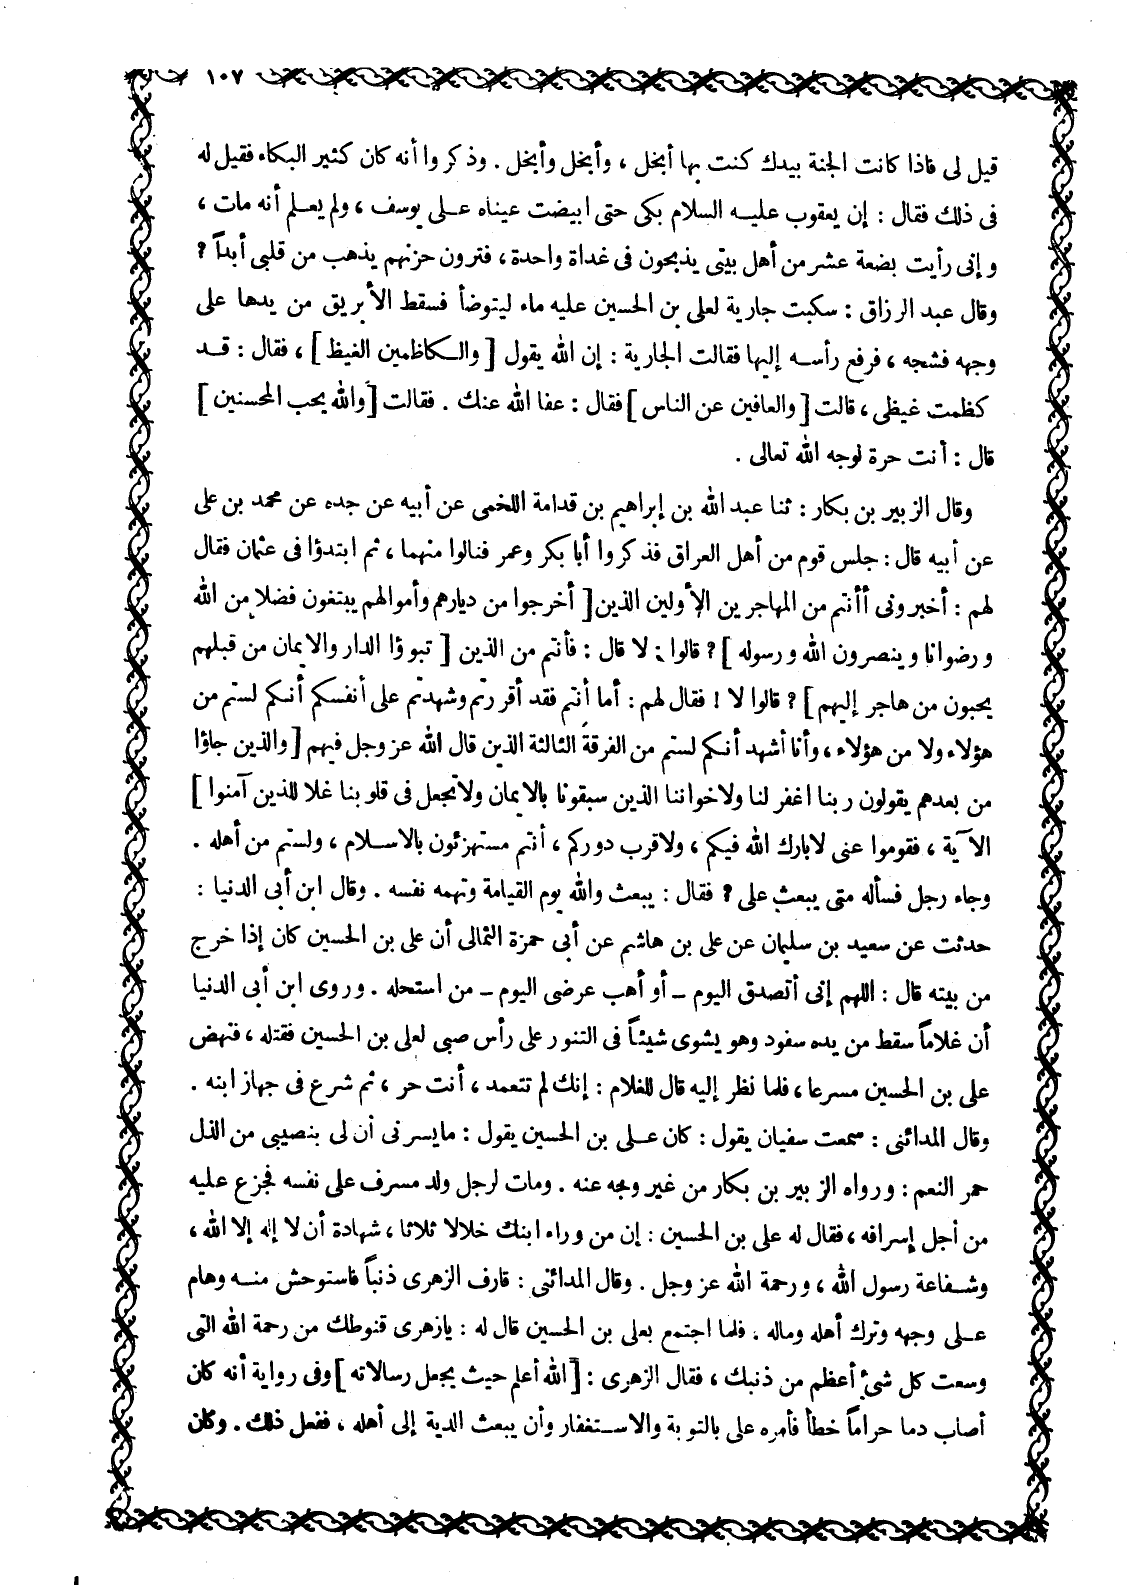 ١٠٧
قيل لى فاذا كانت الجنة بيدك كنت بها أبخل ، وأبخل وأبخل . وذكروا أنه كان كثير البكاء فقيل له
فى ذلك فقال : إن يعقوب عليه السلام بكى حتى ابيضت عيناه على يوسف ، ولم يعلم أنه مات ،
وإنى رأيت بضعة عشر من أهل بيتى يذبحون فى غداة واحدة ، فترون حزنهم يذهب من قلبى أبداً ؟
وقال عبد الرزاق : سكبت جارية لعلى بن الحسين عليه ماء ليتوضأ فسقط الأبريق من يدها على
وجهه فشجه ، فرفع رأسه إليها فقالت الجارية : إن الله يقول [ والكاظمين الغيظ ] ، فقال : قد
كظمت غيظى ، قالت [ والعافين عن الناس ] فقال : عفا الله عنك . فقالت [ والله يحب المحسنين ]
قال : أنت حرة لوجه الله تعالى .
وقال الزبير بن بكار : ثنا عبد الله بن إبراهيم بن قدامة اللخمى عن أبيه عن جده عن محمد بن على
عن أبيه قال : جلس قوم من أهل العراق فذكروا أبا بكر وعمر فنالوا منهما ، ثم ابتدؤا فى عثمان فقال
لهم : أخبرونى أأنتم من المهاجرين الأولين الذين [ أخرجوا من ديارهم وأموالهم يبتغون فضلا من الله
ورضوانا وينصرون الله ورسوله ] ؟ قالوا : لا قال : فأنتم من الذين [ تبوؤا الدار والايمان من قبلهم
يحبون من هاجر إليهم ] ؟ قالوا لا ! فقال لهم : أما أنتم فقد أقررتم وشهدتم على أنفسكم أنكم لستم من
هؤلاء ولا من هؤلاء ، وأنا أشهد أنكم لستم من الفرقة الثالثة الذين قال الله عز وجل فيهم [ والذين جاؤا
من بعدهم يقولون ربنا اغفر لنا ولاخواننا الذين سبقونا بالايمان ولا تجعل فى قلوبنا غلا للذين آمنوا ]
الآية ، فقوموا عنى لا بارك الله فيكم ، ولا قرب دوركم ، أنتم مستهزئون بالاسلام ، ولستم من أهله .
وجاء رجل فسأله متى يبعث على ؟ فقال : يبعث والله يوم القيامة وتهمه نفسه . وقال ابن أبى الدنيا :
حدثت عن سعيد بن سليمان عن على بن هاشم عن أبى حمزة الثمالى أن على بن الحسين كان إذا خرج
من بيته قال : اللهم إنى أتصدق اليوم ــ أو أهب عرضى اليوم ــ من استحله . وروى ابن أبى الدنيا
أن غلاماً سقط من يده سفود وهو يشوى شيئاً فى التنور على رأس صبى لعلى بن الحسين فقتله ، فنهض
على بن الحسين مسرعا ، فلما نظر إليه قال للغلام : إنك لم تتعمد ، أنت حر ، ثم شرع فى جهاز ابنه .
وقال المدائنى : سمعت سفيان يقول : كان على بن الحسين يقول : ما يسرنى أن لى بنصيبى من الذل
حمر النعم : ورواه الزبير بن بكار من غير وجه عنه . ومات لرجل ولد مسرف على نفسه فجزع عليه
من أجل إسرافه ، فقال له على بن الحسين : إن من وراء ابنك خلالا ثلاثا ، شهادة أن لا إله إلا الله ،
وشفاعة رسول الله ، ورحمة الله عز وجل . وقال المدائنى : قارف الزهرى ذنباً فاستوحش منه وهام
على وجهه وترك أهله وماله . فلما اجتمع بعلى بن الحسين قال له : يازهرى قنوطك من رحمة الله التى
وسعت كل شئ أعظم من ذنبك ، فقال الزهرى : [ الله أعلم حيث يجعل رسالاته ] وفى رواية أنه كان
أصاب دما حراماً خطأ فأمره على بالتوبة والاستغفار وأن يبعث الدية إلى أهله ، ففعل ذلك . وكان